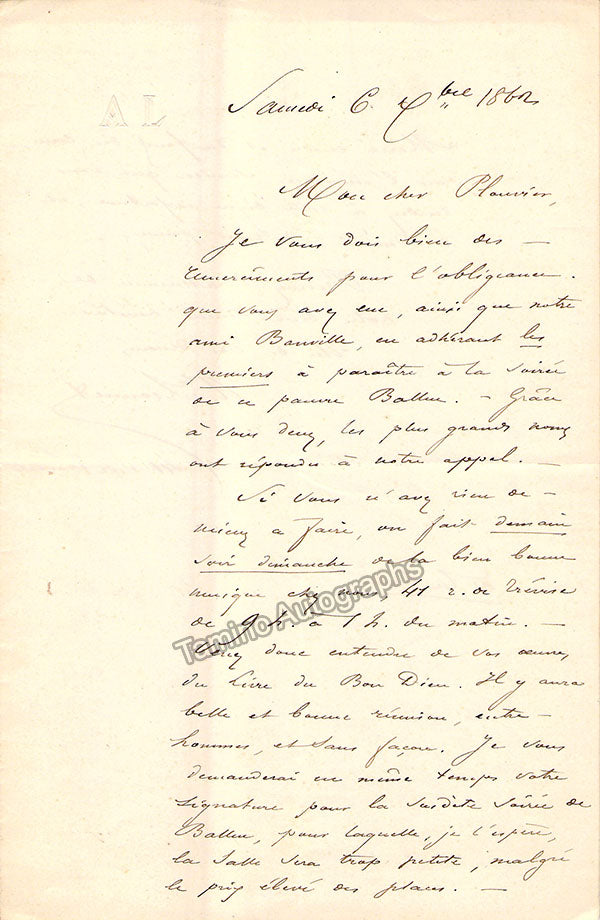 Samedi 6. Xbre 1862
Mon cher Plouvier,
Je vous dois bien des —
remerciments pour l'obligeance.
que vous avez eue, ainsi que notre
ami Banville, en adhérant les
premiers à paraître à la soirée
de ce pauvre Ballue. — Grâce
à vous deux, les plus grands noms
ont répondu à notre appel. —
Si vous n'avez rien de —
mieux a faire, on fait demain
soir dimanche de la bien bonne
musique chez nous, 41 r. de Trévise
de 9 h. à 1 h. du matin. —
Venez donc entendre de vos œuvres
du Livre du Bon Dieu. Il y aura
belle et bonne réunion, entre —
hommes, et sans façon. Je vous
demanderai en même temps votre
signature pour la susdite soirée de
Ballue, pour laquelle, je l'espère,
la salle sera trop petite, malgré
le prix élevé des places. —
Tamino Autographs